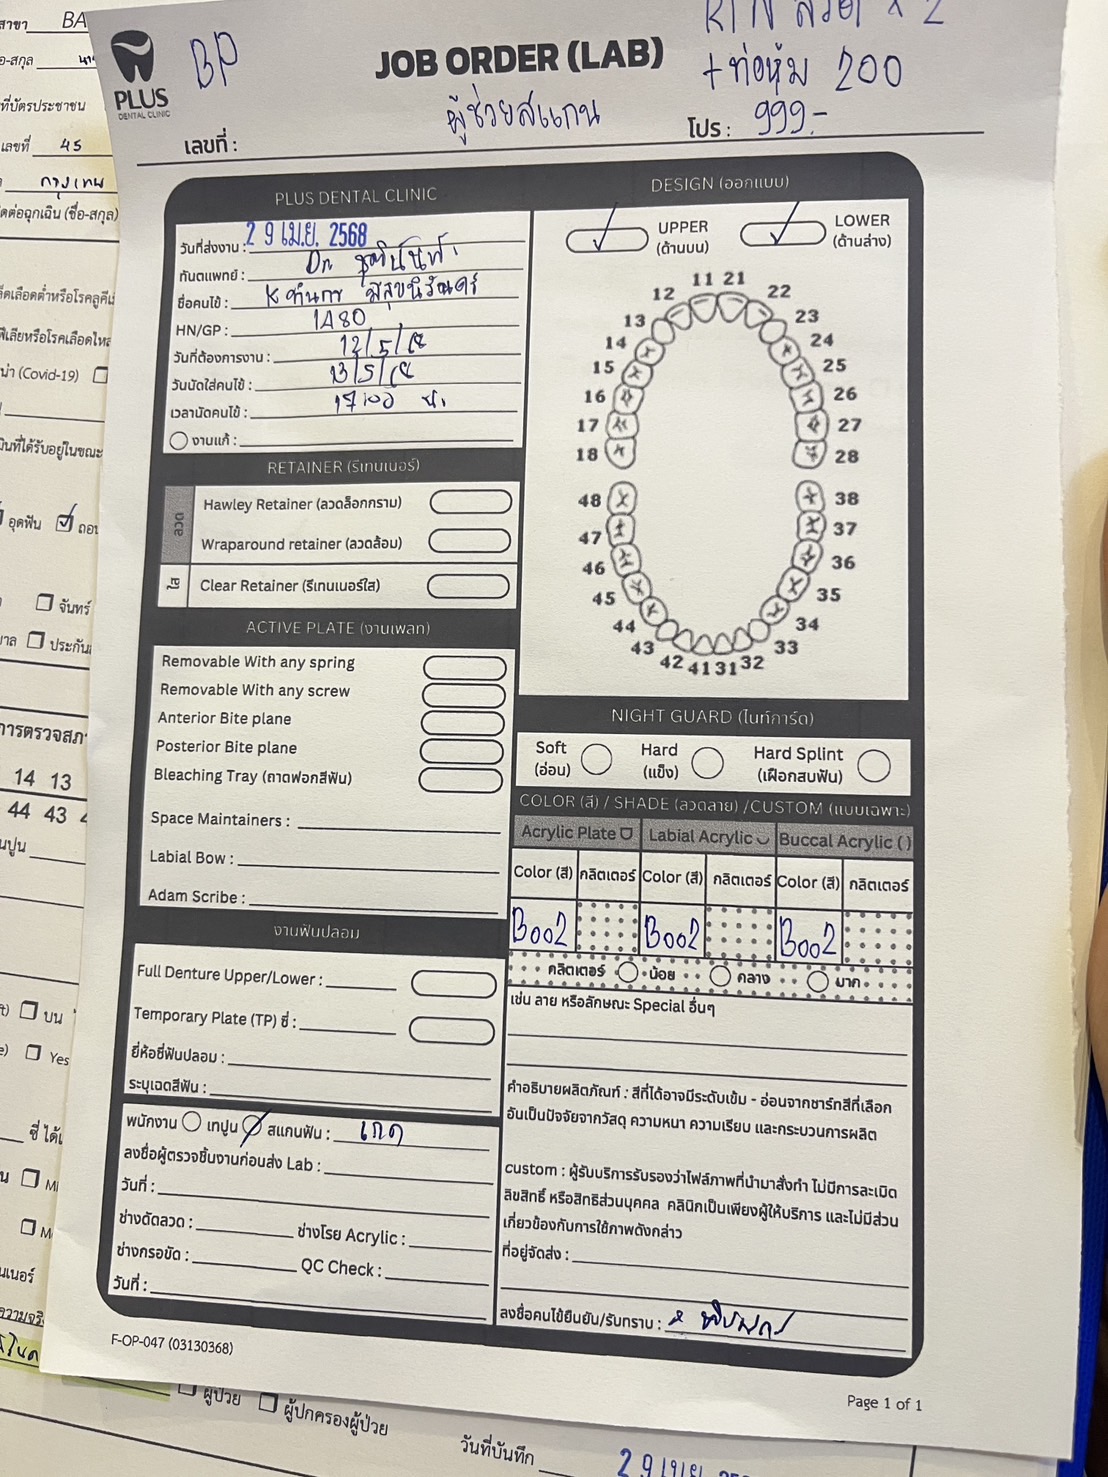 BP
RTN ลวด x 2
+ ท่อหุ้ม 200
PLUS
DENTAL CLINIC
JOB ORDER (LAB)
ผู้ช่วยสแกน
เลขที่ :
โปร : 999.-
PLUS DENTAL CLINIC
วันที่ส่งงาน : 29 เม.ย. 2568
ทันตแพทย์ : Dr.
ชื่อคนไข้ : K
HN/GP : 1A80
วันที่ต้องการงาน : 12/5/68
วันนัดใส่คนไข้ : 13/5/68
เวลานัดคนไข้ : 17:00 น.
งานแก้ :
RETAINER (รีเทนเนอร์)
ลวด
Hawley Retainer (ลวดล็อกกราม)
Wraparound retainer (ลวดล้อม)
ใส
Clear Retainer (รีเทนเนอร์ใส)
ACTIVE PLATE (งานเพลท)
Removable With any spring
Removable With any screw
Anterior Bite plane
Posterior Bite plane
Bleaching Tray (ถาดฟอกสีฟัน)
Space Maintainers :
Labial Bow :
Adam Scribe :
งานฟันปลอม
Full Denture Upper/Lower :
Temporary Plate (TP) ซี่ :
ยี่ห้อซี่ฟันปลอม :
ระบุเฉดสีฟัน :
พนักงาน เทปูน สแกนฟัน : เกด
ลงชื่อผู้ตรวจชิ้นงานก่อนส่ง Lab :
วันที่ :
ช่างดัดลวด : ช่างโรย Acrylic :
ช่างกรอขัด : QC Check :
วันที่ :
DESIGN (ออกแบบ)
UPPER LOWER
(ด้านบน) (ด้านล่าง)
11 21
12 22
13 23
14 24
15 25
16 26
17 27
18 28
48 38
47 37
46 36
45 35
44 34
43 33
42 41 31 32
NIGHT GUARD (ไนท์การ์ด)
Soft Hard Hard Splint
(อ่อน) (แข็ง) (เฝือกสบฟัน)
COLOR (สี) / SHADE (ลวดลาย) /CUSTOM (แบบเฉพาะ)
Acrylic Plate Labial Acrylic Buccal Acrylic ( )
Color (สี) กลิตเตอร์ Color (สี) กลิตเตอร์ Color (สี) กลิตเตอร์
B002 B002 B002
กลิตเตอร์ น้อย กลาง มาก
เช่น ลาย หรือลักษณะ Special อื่นๆ
คำอธิบายผลิตภัณฑ์ : สีที่ได้อาจมีระดับเข้ม - อ่อนจากชาร์ทสีที่เลือก
อันเป็นปัจจัยจากวัสดุ ความหนา ความเรียบ และกระบวนการผลิต
custom : ผู้รับบริการรับรองว่าไฟล์ภาพที่นำมาสั่งทำ ไม่มีการละเมิด
ลิขสิทธิ์ หรือสิทธิส่วนบุคคล คลินิกเป็นเพียงผู้ให้บริการ และไม่มีส่วน
เกี่ยวข้องกับการใช้ภาพดังกล่าว
ที่อยู่จัดส่ง :
ลงชื่อคนไข้ยืนยัน/รับทราบ :
F-OP-047 (03130368)
Page 1 of 1
สาขา BA
ที่บัตรประชาชน
เลขที่ 45
กรุงเทพ
(Covid-19)
อุดฟัน
จันทร์
14 13
44 43
บน
Yes
ผู้ป่วย ผู้ปกครองผู้ป่วย
วันที่บันทึก